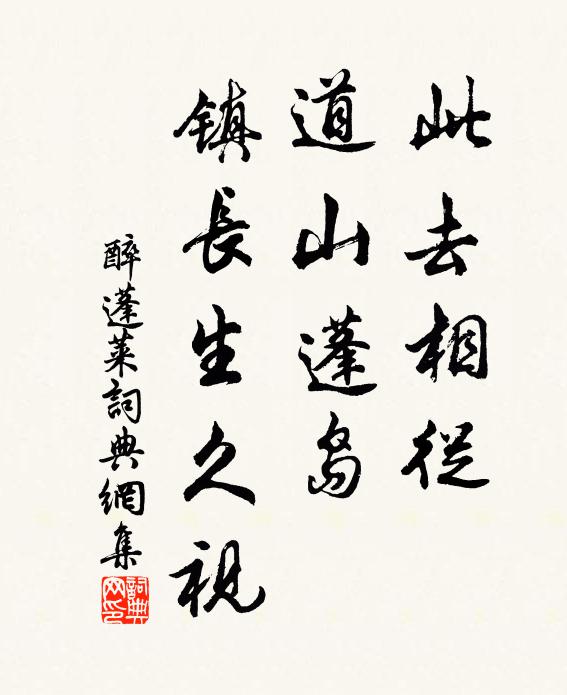 此去相從
道山蓬島
鎮長生久視
醉蓬萊詞典網集
詞典网印